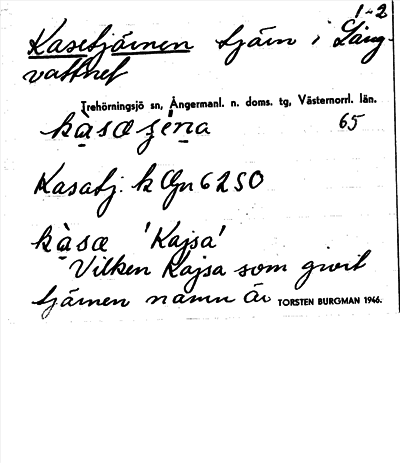 1-2
Kasetjärnen tjärn i Lång-
vattnet
Trehörningsjö sn, Ångermanl. n. doms. tg, Västernorrl. län.
65
Kasatj. k Gn 6250
kàsæ 'Kajsa'
Vilken Kajsa som givit
tjärnen namn är
TORSTEN BURGMAN 1946.